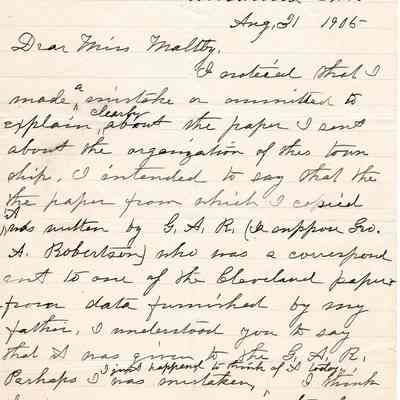 Aug, 21 1905
Dear Miss Maltby.
I noticed that I
made a mistake or ommitted to
explain clearly about the paper I sent
about the organization of this town
ship. I intended to say that the
the paper from which I copied
was written by G. A. R. (I suppose Geo.
A. Robertson) who was a correspond
ent to one of the Cleveland papers
from data furnished by my
father. I understood you to say
that it was given to the G. A. R.
I just happend to think of it today
Perhaps I was mistaken, I think